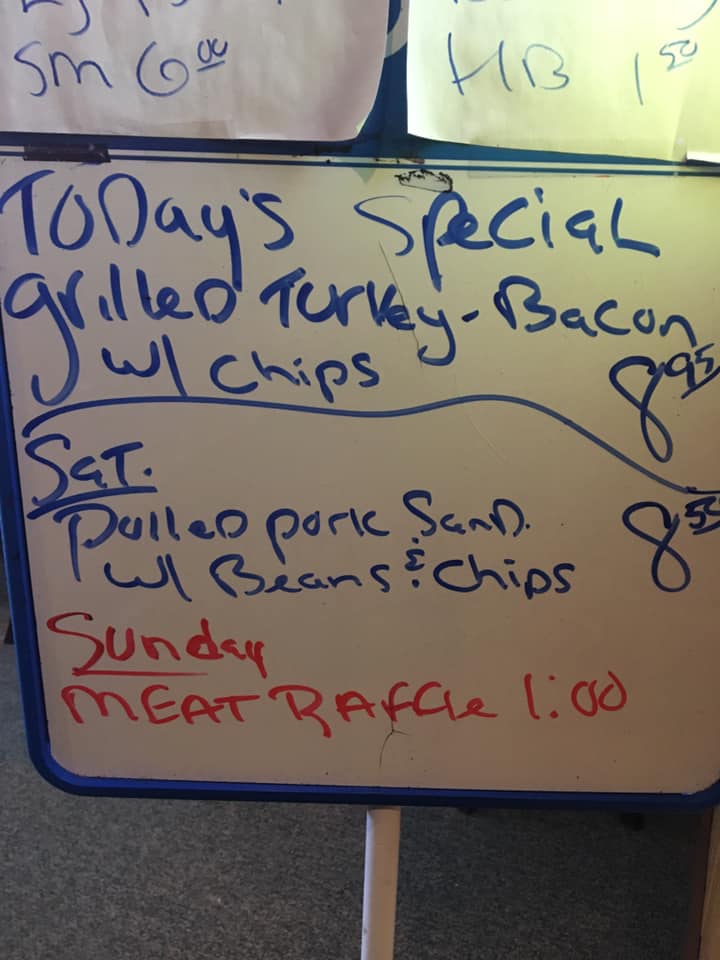 Sm 6.00
HB 1.50
TODay's Special
grilleD Turkey-Bacon
w/ chips 8.95
Sat.
pulleD pork SanD. 8.55
w/ Beans & Chips
Sunday
MEAT RAffle 1:00